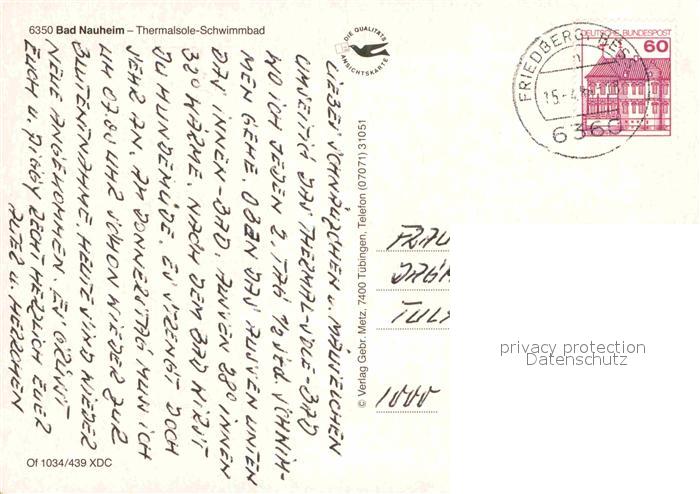 6350 Bad Nauheim – Thermalsole-Schwimmbad
DIE QUALITÄTS
ANSICHTSKARTE
DEUTSCHE BUNDESPOST
60
FRIEDBERG, HESS
15.-4.
6360
LIEBES SCHNÄUZCHEN U. MÄUSELCHEN
UMSEITIG DAS THERMAL-SOLE-BAD
WO ICH JEDEN 2. TAG 1/2 STD. SCHWIM-
MEN GEHE. OBEN DAS AUSSEN UNTEN
DAS INNEN-BAD. AUSSEN 28° INNEN
32° WÄRME. NACH DEM BAD BIST
DU HUNDEMÜDE. ES STRENGT DOCH
SEHR AN. AM DONNERSTAG MUSS ICH
UM 07.00 UHR SCHON WIEDER ZUR
BLUTENTNAHME. HEUTE SIND WIEDER
NEUE ANGEKOMMEN. ES GRÜSST
EUCH U. PIGGY RECHT HERZLICH EUER
U. HERRCHEN
© Verlag Gebr. Metz, 7400 Tübingen, Telefon (07071) 31051
FRAU
1000
privacy protection
Datenschutz
Of 1034/439 XDC